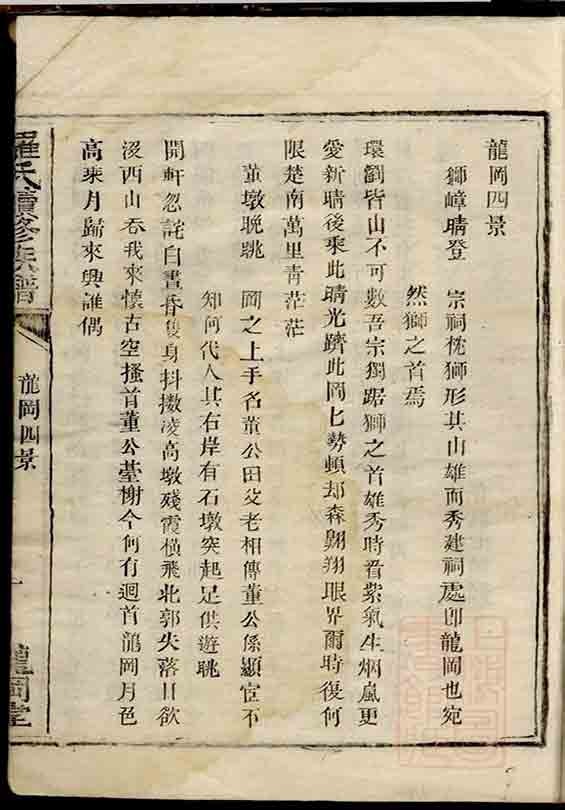 龍岡四景
獅嶂晴登　宗祠枕獅形其山雄而秀建祠處即龍岡也宛
然獅之首焉
環瀏皆山不可數吾宗獨踞獅之首雄秀時看紫氣生烟嵐更
愛新晴後乘此晴光躋此岡上勢頓却森翺翔眼界爾時復何
限楚南萬里青茫茫
董墩晚眺　岡之上手名董公田父老相傳董公係顯宦不
知何代人其右岸有石墩突起足供遊眺
開軒忽詫白晝昏隻身抖擻凌高墩殘霞橫飛北郭失落日欲
沒西山吞我來懷古空搔首董公臺榭今何有迴首龍岡月色
高乘月歸來興誰偶
羅氏續修族譜
龍岡四景
一
龍岡堂